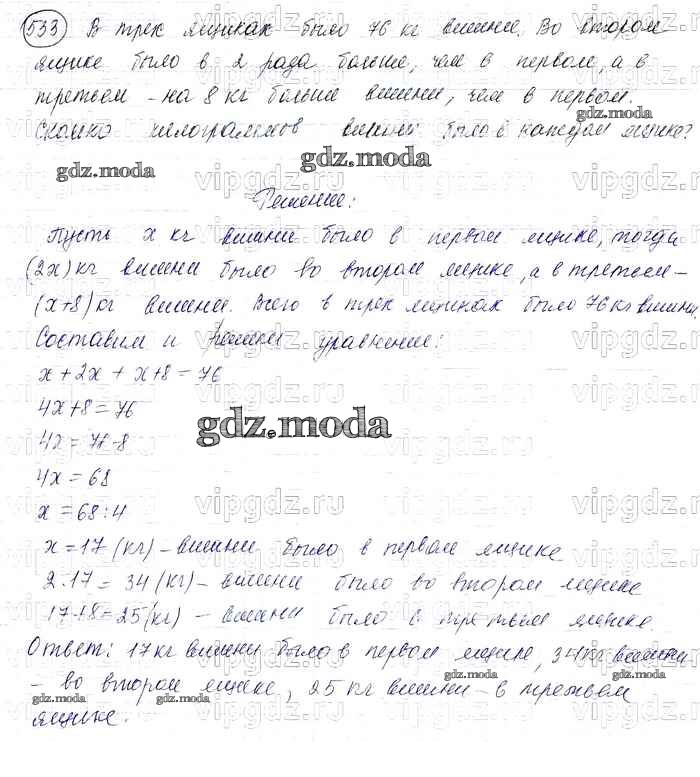 533 В трех ящиках было 76 кг вишни. Во втором
ящике было в 2 раза больше, чем в первом, а в
третьем – на 8 кг больше вишни, чем в первом.
Сколько килограммов вишни было в каждом ящике?
gdz.moda
gdz.moda
gdz.moda
Решение:
Пусть x кг вишни было в первом ящике, тогда
(2x) кг вишни было во втором ящике, а в третьем –
(x+8) кг вишни. Всего в трех ящиках было 76 кг вишни.
Составим и решим уравнение:
x + 2x + x+8 = 76
4x+8 = 76
4x = 76-8
gdz.moda
4x = 68
x = 68:4
x = 17 (кг) – вишни было в первом ящике
2·17 = 34 (кг) – вишни было во втором ящике
17+8 = 25 (кг) – вишни было в третьем ящике.
Ответ: 17 кг вишни было в первом ящике, 34 кг вишни
– во втором ящике, 25 кг вишни – в третьем
ящике.
gdz.moda
gdz.moda
gdz.moda
vipgdz.ru